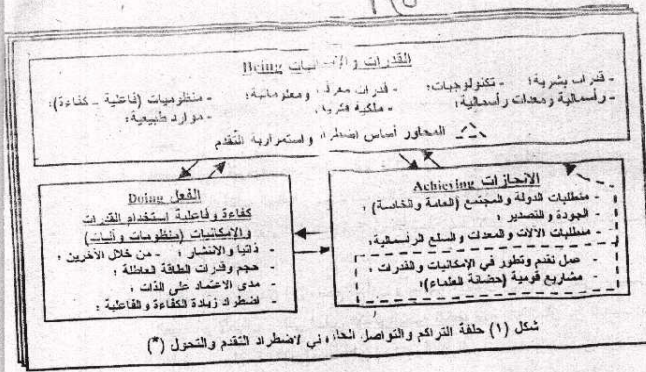 القدرات والإمكانيات Being
- قدرات بشرية؛ - تكنولوجيات؛ - قدرات معرفية ومعلوماتية؛ - منظوميات (فاعلية – كفاءة)؛
- رأسمالية ومعدات رأسمالية؛ - ملكية فكرية؛ - موارد طبيعية؛
المحاور أساس اضطراد واستمرارية التقدم
الفعل Doing
كفاءة وفاعلية استخدام القدرات
والإمكانيات (منظومات وآليات)
- ذاتيا والانتشار ؛ - من خلال الآخرين ؛
- حجم وقدرات الطاقة العاطلة ؛
- مدى الاعتماد على الذات ؛
- اضطراد زيادة الكفاءة والفاعلية ؛
الإنجازات Achieving
- متطلبات الدولة والمجتمع (العامة والخاصة) ؛
- الجودة والتصدير ؛
- متطلبات الآلات والمعدات والسلع الرأسمالية؛
- عمل تقدم وتطور في الإمكانيات والقدرات ؛
- مشاريع قومية (حضانة العلماء)؛
شكل (١) حلقة التراكم والتواصل لاضطراد التقدم والتحول (*)